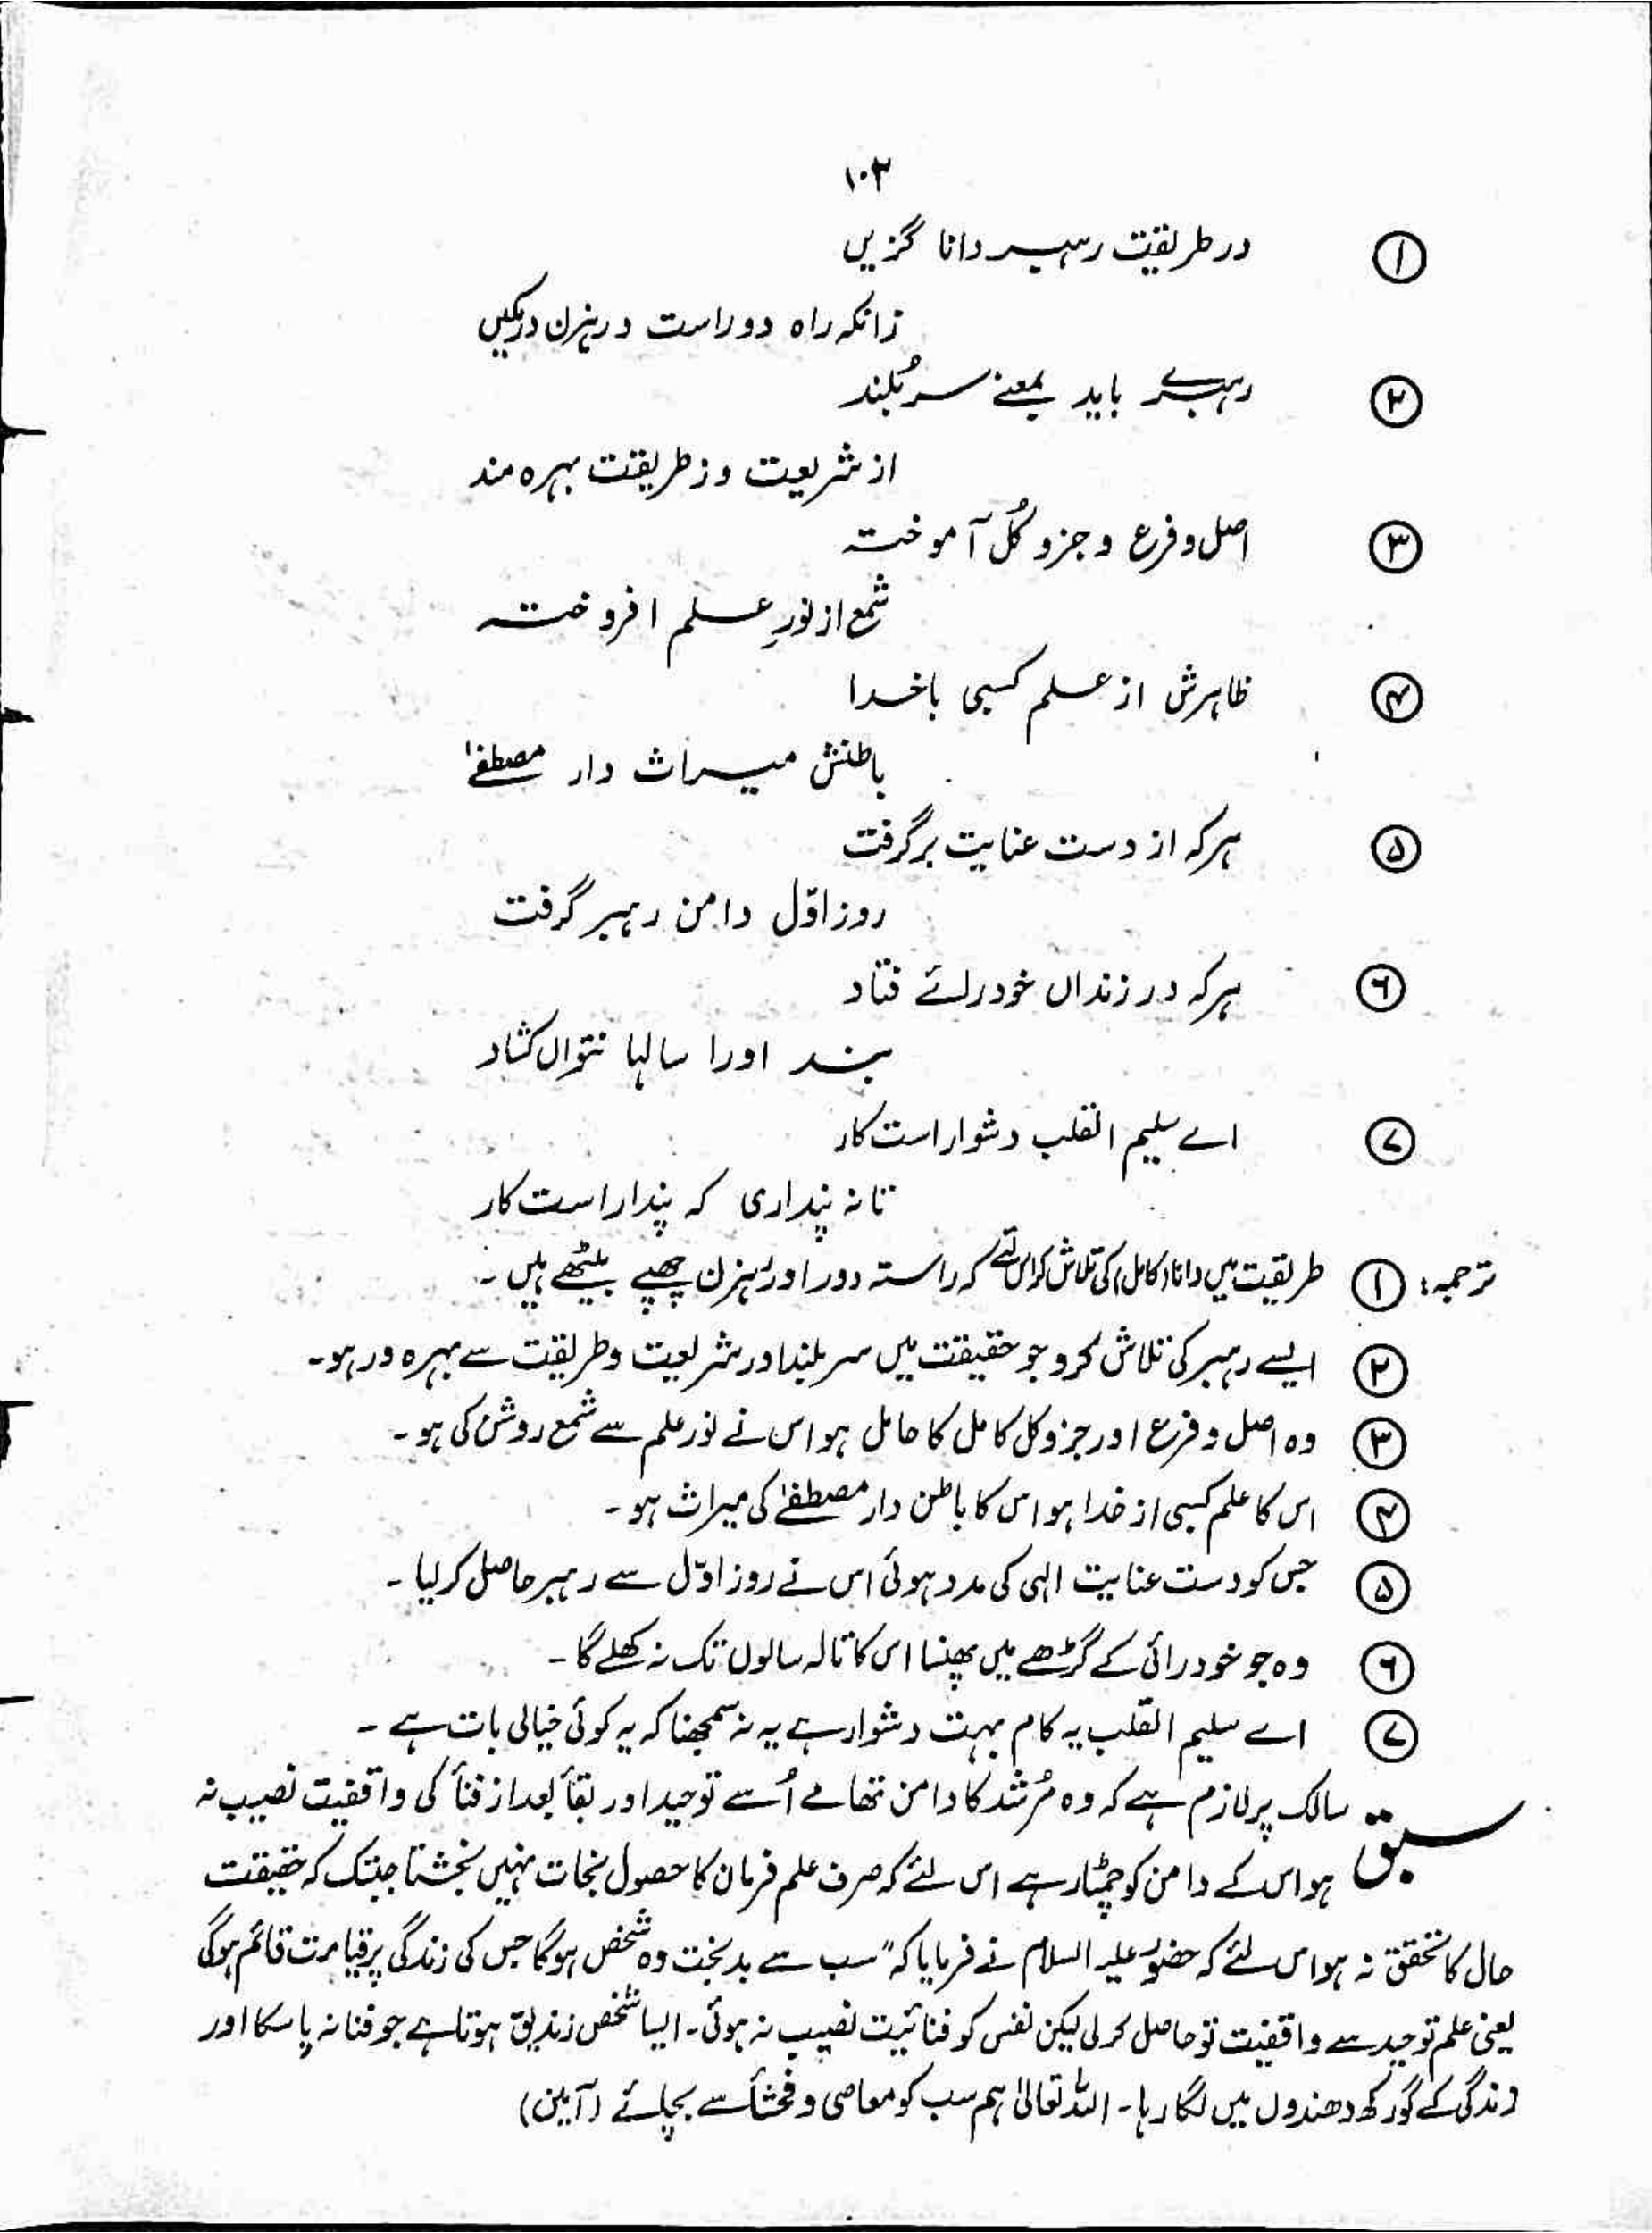 ۱۰۳
① در طریقت رہبر دانا گزیں
زانکہ راہ دور است و رہزن در کمیں
② رہبرے باید بمعنے سر بُلند
از شریعت وز طریقت بہرہ مند
③ اصل و فرع و جزو کُل آموختہ
شمع از نورِ علم افروختہ
④ ظاہرش از علم کسبی باخدا
باطنش میراث دار مصطفےٰ
⑤ ہرکہ از دست عنایت برگرفت
روز اوّل دامن رہبر گرفت
⑥ ہرکہ در زنداں خودرائے فتاد
بند اورا سالہا نتواں کشاد
⑦ اے سلیم القلب دشوار است کار
تا نہ پنداری کہ پندار است کار
ترجمہ: ① طریقت میں دانا (کامل) کی تلاش کر اس لئے کہ راستہ دور اور رہزن چھپے بیٹھے ہیں ۔
② ایسے رہبر کی تلاش کرو جو حقیقت میں سر بلند اور شریعت و طریقت سے بہرہ ور ہو۔
③ وہ اصل و فرع اور جزو کل کامل کا حامل ہو اس نے نور علم سے شمع روشن کی ہو ۔
④ اس کا علم کسبی از خدا ہو اس کا باطن دار مصطفےٰ کی میراث ہو ۔
⑤ جس کو دست عنایت الہی کی مدد ہوئی اس نے روز اوّل سے رہبر حاصل کرلیا ۔
⑥ وہ جو خود رائی کے گڑھے میں پھنسا اس کا تالہ سالوں تک نہ کھلے گا ۔
⑦ اے سلیم القلب یہ کام بہت دشوار ہے یہ نہ سمجھنا کہ یہ کوئی خیالی بات ہے ۔
سبق سالک پر لازم ہے کہ وہ مُرشد کا دامن تھامے اُسے توحید اور بقأ بعد از فنأ کی واقفیت نصیب نہ
ہو اس کے دامن کو چمٹا رہے اس لئے کہ صرف علم فرمان کا حصول نجات نہیں بخشتا جبتک کہ حقیقت
حال کا تحقق نہ ہو اس لئے کہ حضور علیہ السلام نے فرمایا کہ "سب سے بدبخت وہ شخص ہوگا جس کی زندگی پر قیامت قائم ہوگی
یعنی علم توحید سے واقفیت تو حاصل کر لی لیکن نفس کو فنائیت نصیب نہ ہوئی۔ ایسا شخص زندیق ہوتا ہے جو فنا نہ پا سکا اور
زندگی کے گورکھ دھندوں میں لگا رہا ۔ اللہ تعالیٰ ہم سب کو معاصی و فحشأ سے بچائے (آمین)